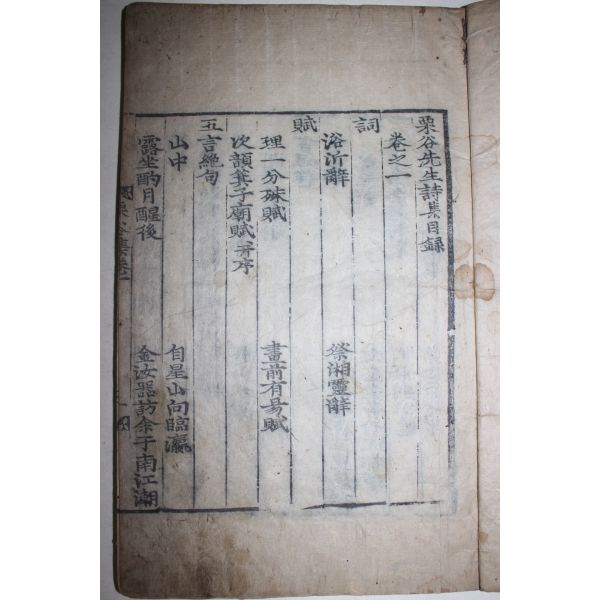 栗谷先生詩集目録
卷之一
詞
浴沂辭 祭湘靈辭
賦
理一分殊賦 畫前有易賦
次韻箕子廟賦并序
五言絶句
山中 自星山向臨瀛
露坐酌月醒後 金汝器訪余于南江潮